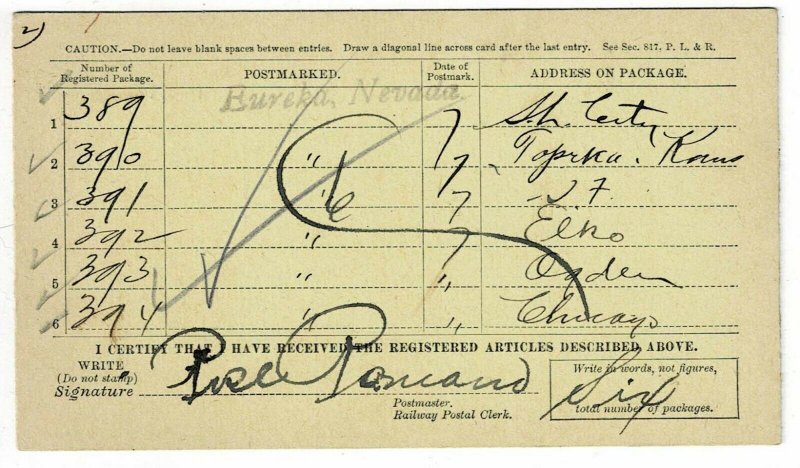 2)
CAUTION.—Do not leave blank spaces between entries. Draw a diagonal line across card after the last entry. See Sec. 817, P. L. & R.
Number of Registered Package. POSTMARKED. Date of Postmark. ADDRESS ON PACKAGE.
Eureka, Nevada.
1 389 7 City
2 390 " 7 Topeka, Kans
3 391 " 7 S F
4 392 " 7 Elko
5 393 " " Ogden
6 394 " " Chicago
I CERTIFY THAT I HAVE RECEIVED THE REGISTERED ARTICLES DESCRIBED ABOVE.
WRITE
(Do not stamp)
Signature
Postmaster.
Railway Postal Clerk.
Write in words, not figures,
Six
total number of packages.